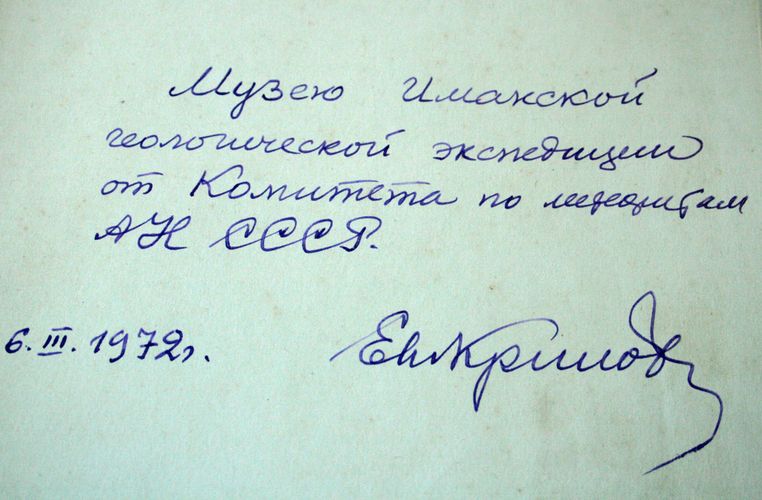 Музею Иманской
геологической экспедиции
от Комитета по метеоритам
АН СССР.
6.III.1972г.
ЕлКринов